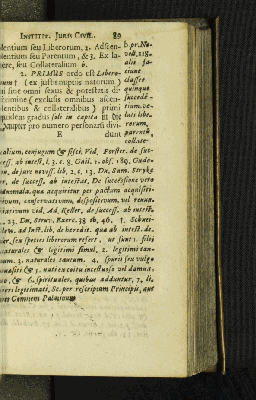 INSTITVT. JURIS CIVIL. 89
lentium seu Liberorum, 2. Adscen-
lentium seu Parentum, & 3. Ex la-
ere, seu Collateralium b.
2. PRIMUS ordo est Libero-
rum † (ex justis nuptiis natorum)
ui sine omni sexus & potestatis di-
scrimine (exclusis omnibus ascen-
dentibus & collateralibus) primi
quidem gradus soli in capita
Nuper pro numero personarum divi-
E dunt
b pr. No-
vell. 118.
alia fa-
ciunt
classes
quinque
succede-
tium, ve-
luti libe-
rorum,
parentũ,
collate-
ralium, conjugum & fisci. Vid. Forster. de suc-
cess. ab intest. l. 3. c. 9. Gail. 2. obs. 189. Gudę-
lin. de jure noviss. lib. 2. c. 13. Dn. Sam. Stryke
de success. ab intestat. De successione vero
anomala, quæ acquiritur per pactum acquisiti-
vum, conservativum, dispositivum, vel renun-
ciativum vid. Ad. Keller, de success. ab intest.
23. Dn. Struv. Exerc. 38 th. 46. † Schnei-
dew. ad Inst. lib. de heredit. quæ ab intest. de-
fer. sex species liberorum refert, ut sunt 1. filii
naturales & legitimi simul, 2. legitimi tan-
tum. 3. naturales tantum. 4. spurii seu vulgo
quæsiti & 5. nati ex coitu incestuoso vel damna-
to, & 6. spirituales, quibus adduntur, 7. li-
beri legitimati, &c. per rescriptum Principis, aut
per Comitem Palatinum